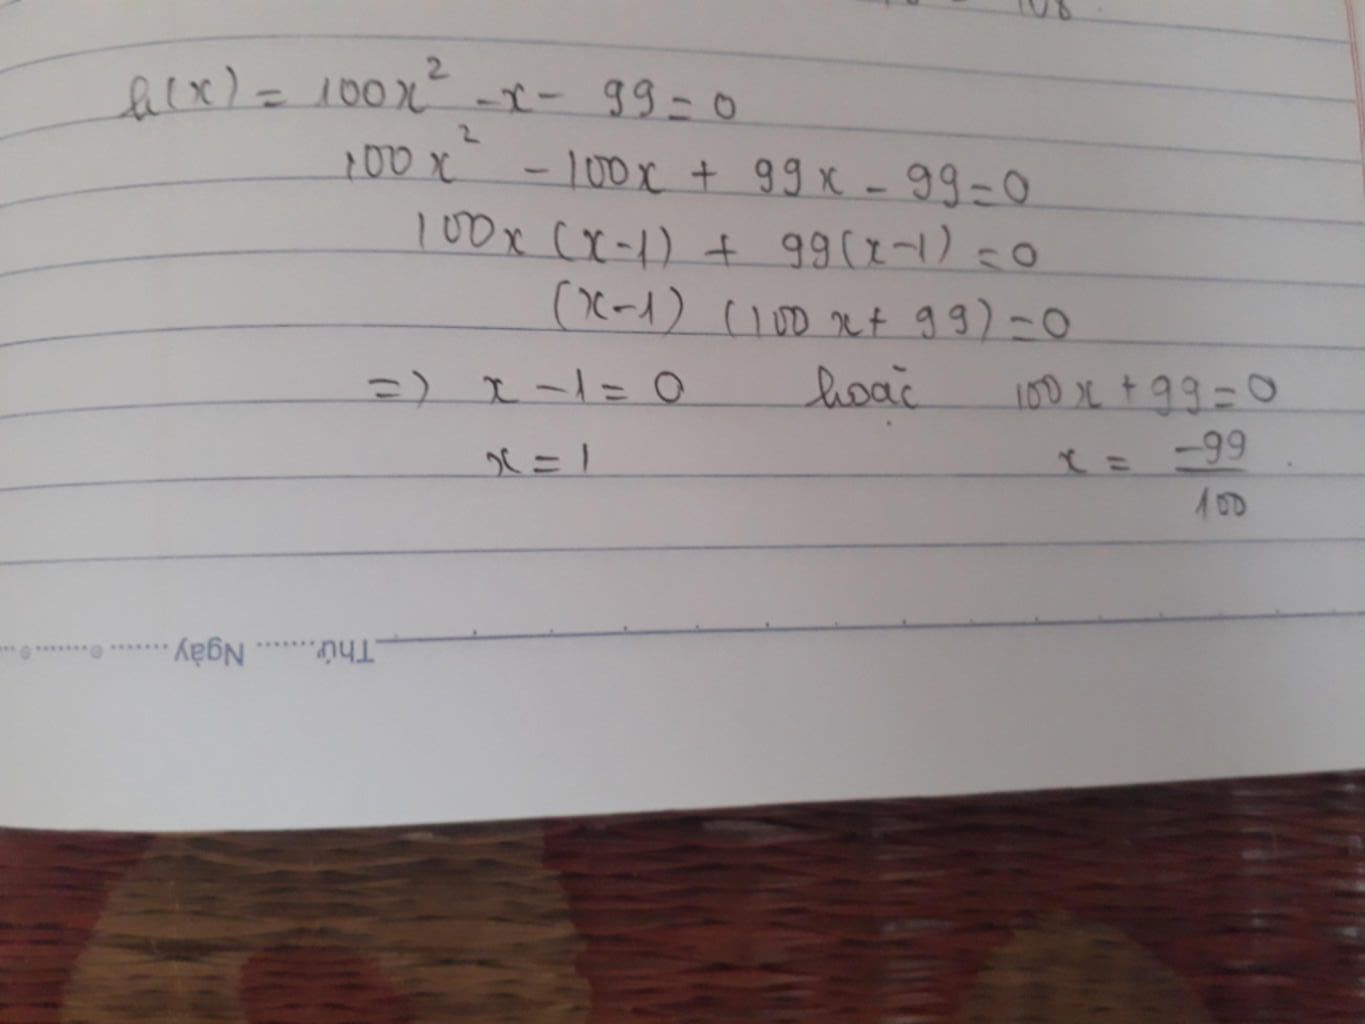 h(x) = 100x² - x - 99 = 0
100x² - 100x + 99x - 99 = 0
100x (x-1) + 99(x-1) = 0
(x-1) (100x + 99) = 0
=> x - 1 = 0 hoặc 100x + 99 = 0
x = 1 x = -99/100
Thứ ........ Ngày ........